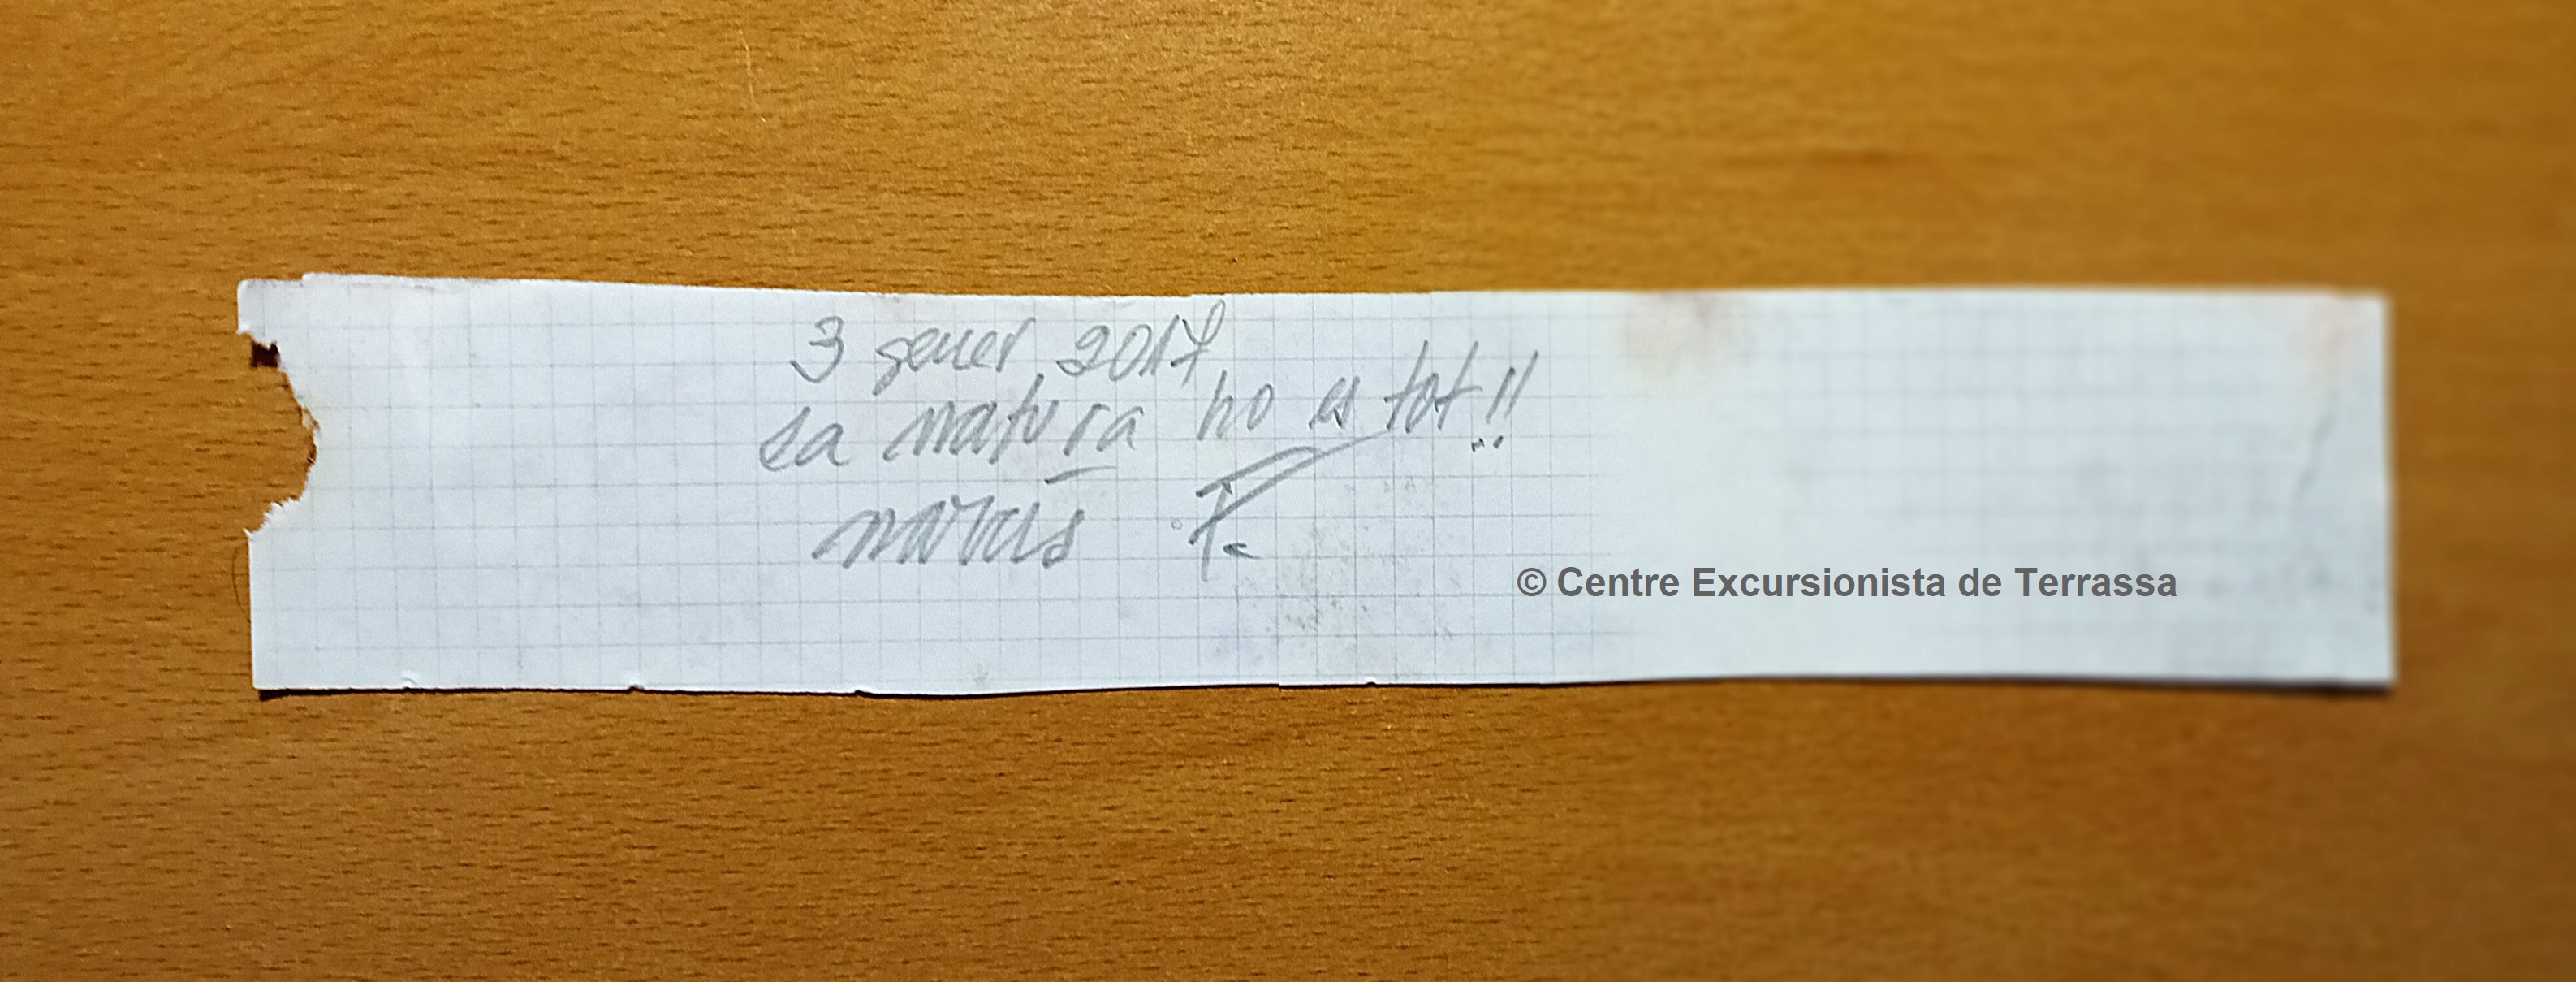 3 gener 2017
La natura ho es tot!!
narcís F.
© Centre Excursionista de Terrassa